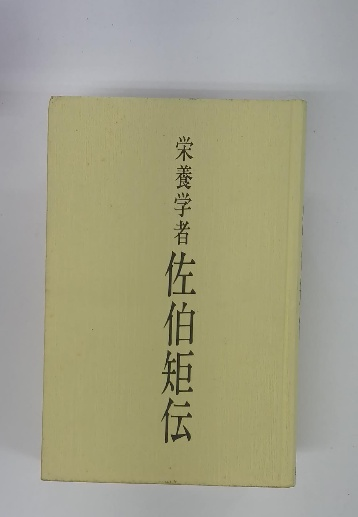 栄養学者 佐伯矩伝